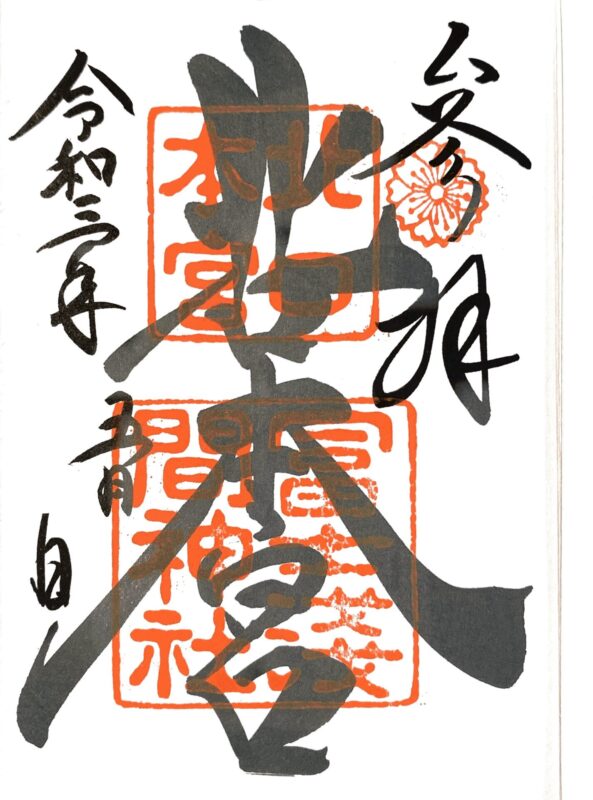 参拝
北口本宮
北口
本宮
冨士淺
間神社
令和三年五月日